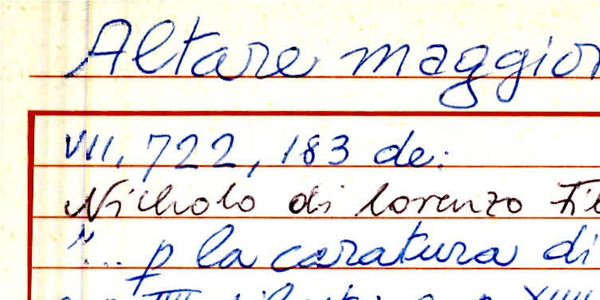 Altare maggior
VII, 722, 183 de:
Nicholo di lorenzo
"... p la caratura di